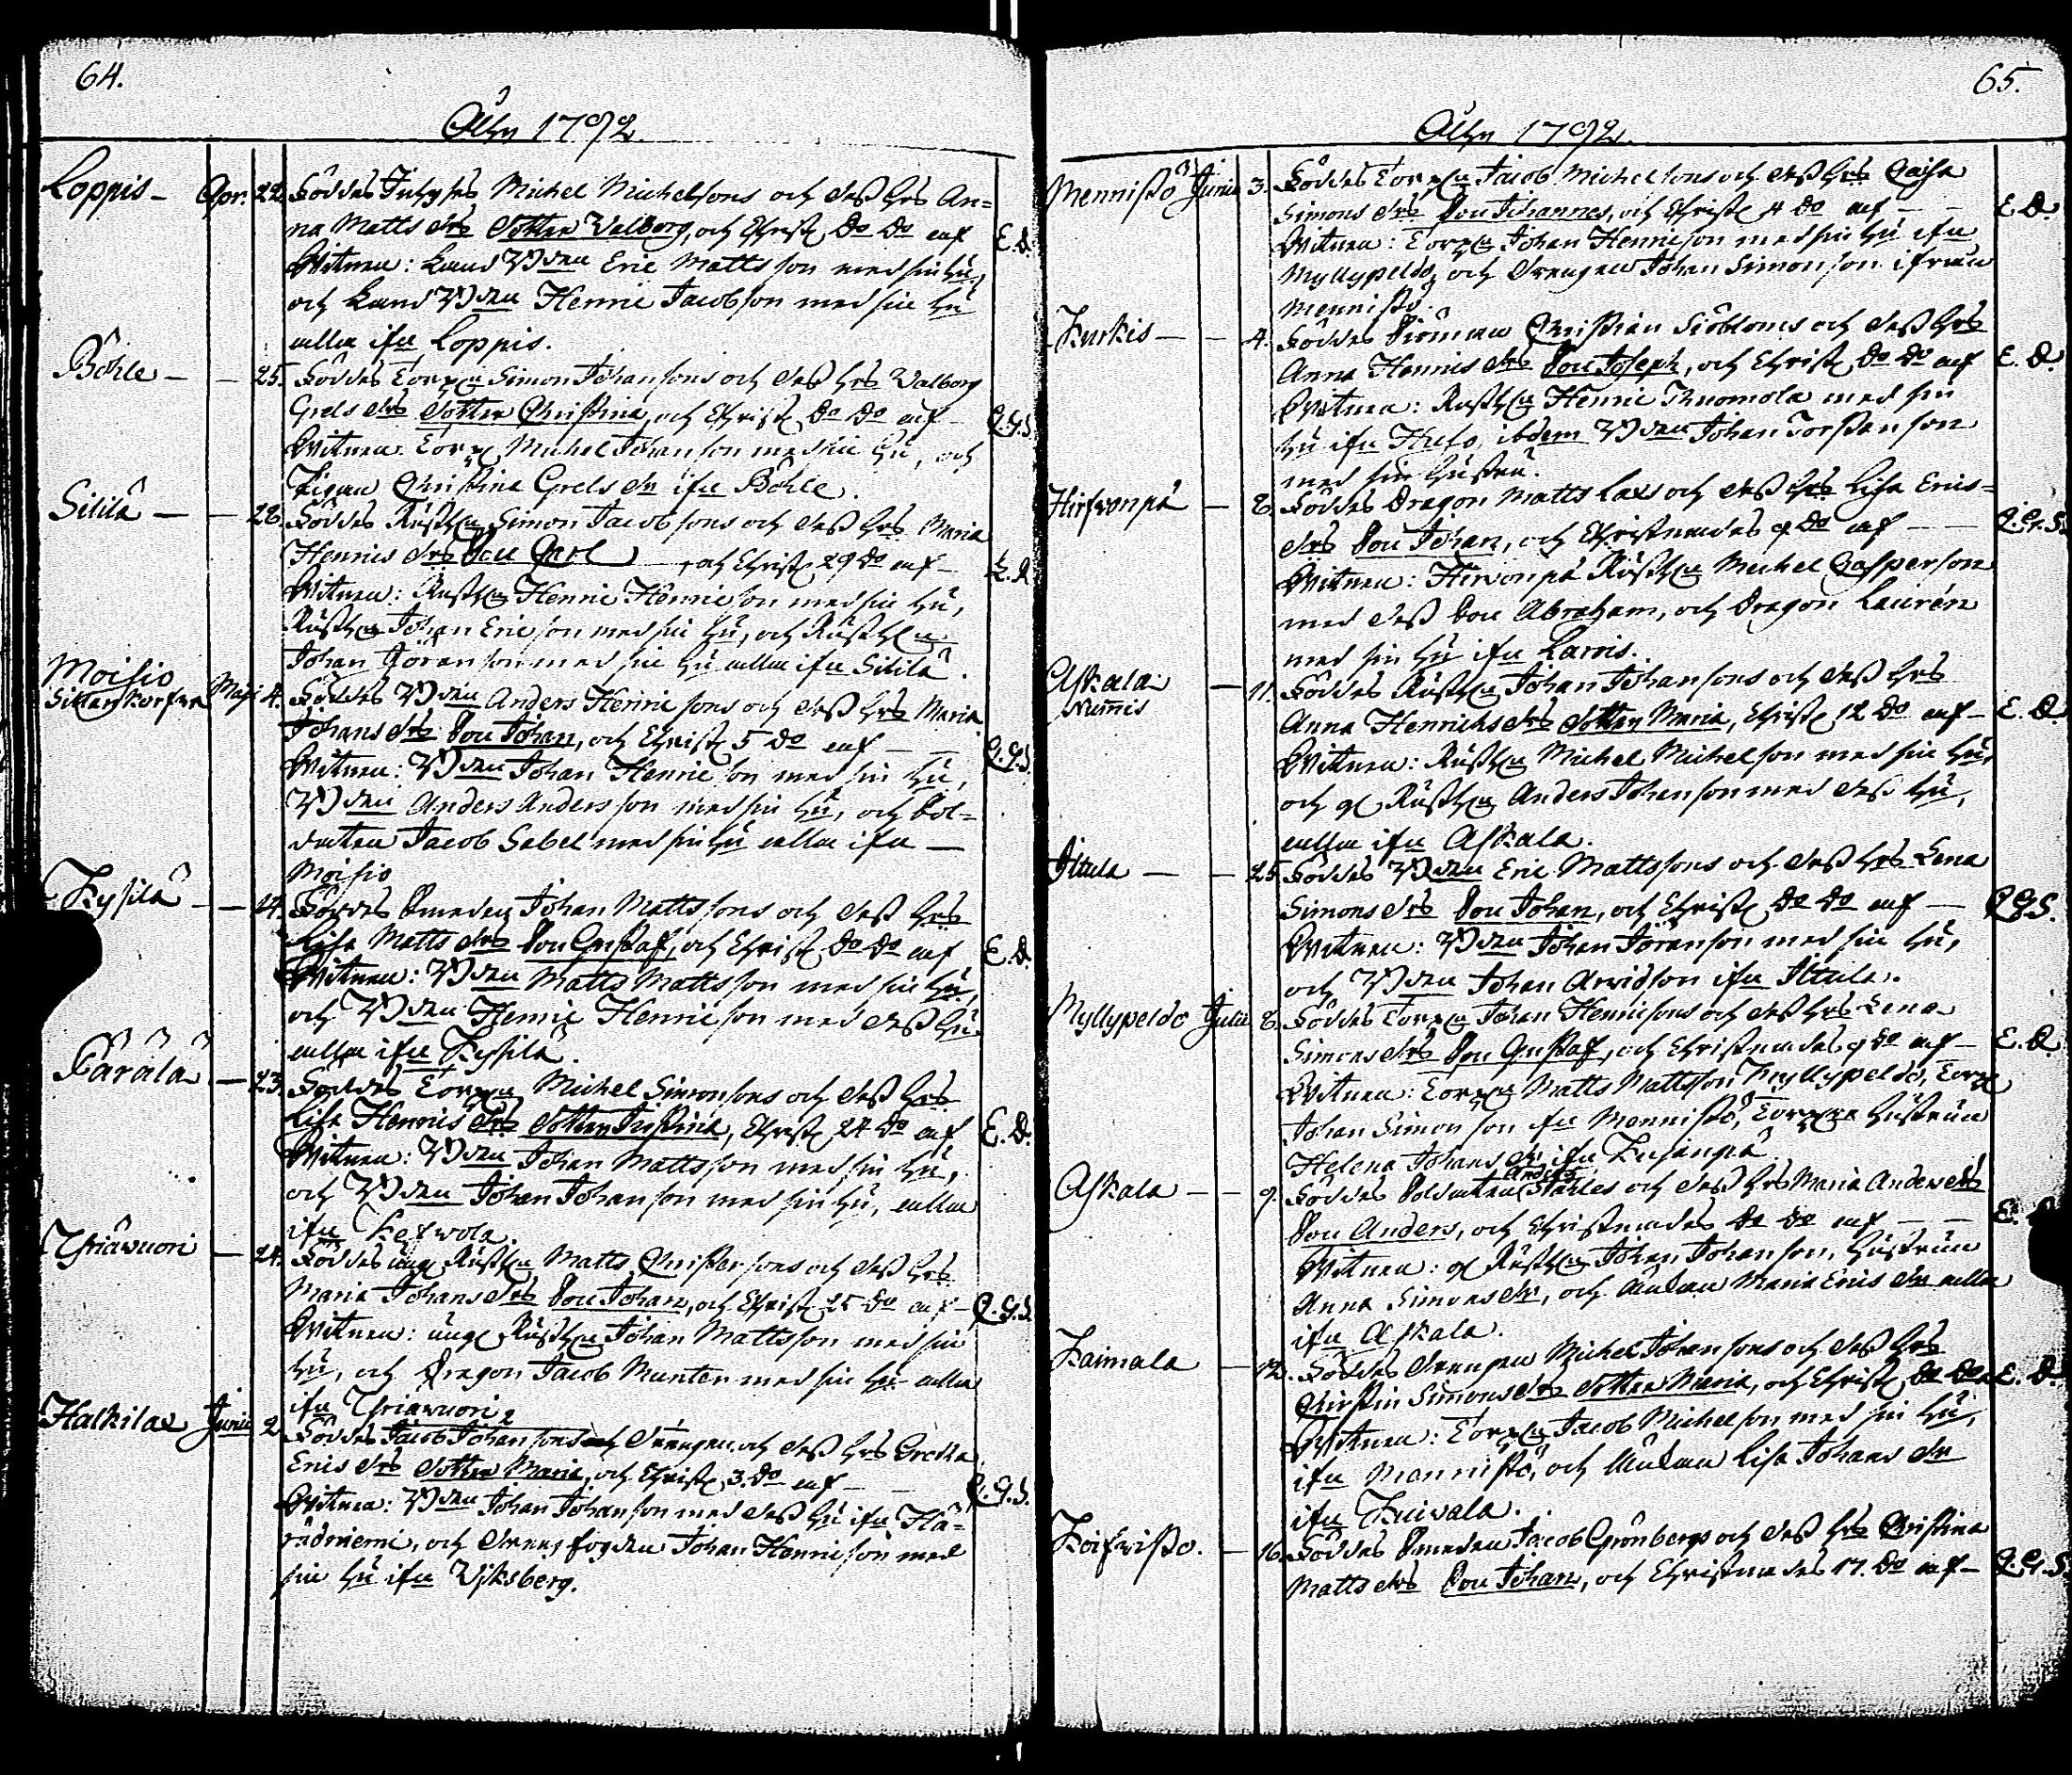 64.
Åhr 1792.
Loppis – Apr. 22. Föddes Michel Michelsons och dess hrs An=
na Matts drs Dotter Walborg, och Christ Do Do af E. D.
Witnen: Land Bden Eric Mattsson med sin hu
och Land Bden Henric Jacobson med sin hu
alla ifrn Loppis.
Böhle – – 25. Föddes Torp Simon Johansons och dess hrs Walborg
Grels drs Dotter Christina, och Christ Do Do af
Witnen: Torp Michel Johanson med sin hu, och
Pigan Christina Grels dr ifrn Böhle.
Sitilä – – 28. Föddes Rusth Simon Jacobsons och dess hrs Maria
Henrics drs Son Carl, och Christ 29 Do af –
Witnen: Rusth Henric Henricson med sin hu,
Rusth Johan Ericson med sin hu, och Rusth
Johan Göranson med sin hu alla ifrn Sitilä.
Moisio Maji 4. Föddes Bden Anders Henricsons och dess hrs Maria
Johans drs Son Johan, och Christ 5 Do af – –
Witnen: Bden Johan Henricson med sin hu,
Bden Anders Andersson med sin hu, och Sol=
daten Jacob Sabel med sin hu alla ifrn –
Moisio
Kysilä – – 14. Föddes Smeden Johan Mattssons och dess hrs
Lisa Matts drs Son Gustaf, och Christ Do Do af E. D.
Witnen: Bden Matts Mattsson med sin hu,
och Bden Henric Henricson med dess hu
alla ifrn Kysilä.
Pärälä – 23. Föddes Torp Michel Simonsons och dess hrs
Lisa Henrics drs Dotter Justina, Christ 24 Do af E. D.
Witnen: Bden Johan Mattsson med sin hu,
och Bden Johan Johanson med sin hu, alla
ifrn
– 24. Föddes ung Rusth Matts Christersons och dess hrs
Maria Johans drs Son Johan, och Christ 25 Do af –
Witnen: ung Rusth Johan Mattsson med sin
hu, och Dragon Jacob Munter med sin hu alla
ifrn
Junii 2. Föddes Jacob Johansons Drengen, och dess hrs Gretha
Erics drs Dotter Maria, och Christ 3. Do af –
Witnen: Bden Johan Johanson med dess hu ifrn Hä=
rädniemi, och Drengfogden Johan Henricson med
sin hu ifrn Wiksberg.
65.
Åhr 1792.
Mennistö Junii 3. Föddes Torp Jacob Michelsons och dess hrs Caisa
Simons drs Son Johannes, och Christ 4 Do af – – E. D.
Witnen: Torp Johan Henricson med sin hu ifrn
Myllypeldo, och Drengen Johan Simonson ifrån
Mennistö.
Kurkis – – 4. Föddes Siöman Christian Siöbloms och dess hrs
Anna Henrics drs Son Joseph, och Christ Do Do af E. D.
Witnen: Rusth Henric med sin
hu ifrn ibdem Bden Johan Torstenson
med sin hustru.
Hirfwonpä – 8. Föddes Dragon Matts Laxs och dess hrs Lisa Erics=
drs Son Johan, och Christnades 9 Do af – –
Witnen: Hirwonpä Rusth Michel Casperson
med dess Son Abraham, och Dragon Laurén
med sin hu ifrn Larvis.
Askala Nummis – 11. Föddes Rusth Johan Johansons och dess hrs
Anna Henrichs drs Dotter Maria, Christ 12 Do af – E. D.
Witnen: Rusth Michel Michelson med sin hu,
och gl Rusth Anders Johanson med dess hu,
alla ifrn Askala.
Ittula – – 25. Föddes Bden Eric Mattssons och dess hrs Lena
Simons drs Son Johan, och Christ Do Do af –
Witnen: Bden Johan Jöranson med sin hu,
och Bden Johan Arvidson ifrn Ittula.
Myllypeldo Julii 8. Föddes Torp Johan Henricsons och dess hrs Lena
Simons drs Son Gustaf, och Christnades 9 Do af – E. D.
Witnen: Torp Matts Mattsson Myllypeldo, Torp
Johan Simonson ifrn Mennistö, Torp Hustrun
Helena Johans dr ifrn
Askala – – 9. Föddes Soldaten Anders Ståhles och dess hrs Maria Anders drs
Son Anders, och Christnades Do Do af – –
Witnen: gl Rusth Johan Johanson, Hustrun
Anna Simons dr, och Änkan Maria Erics dr alla
ifrn Askala.
Kaimala – 12. Föddes Drengen Michel Johansons och dess hrs
Christin Simons drs Dotter Maria, och Christ Do Do E. D.
Witnen: Torp Jacob Michelson med sin hu,
ifrn Mennistö, och Änkan Lisa Johans dr
ifrn
Koifwisto. – 16. Föddes Smeden Jacob Grönbergs och dess hrs Christina
Matts drs Son Johan, och Christnades 17. Do af –